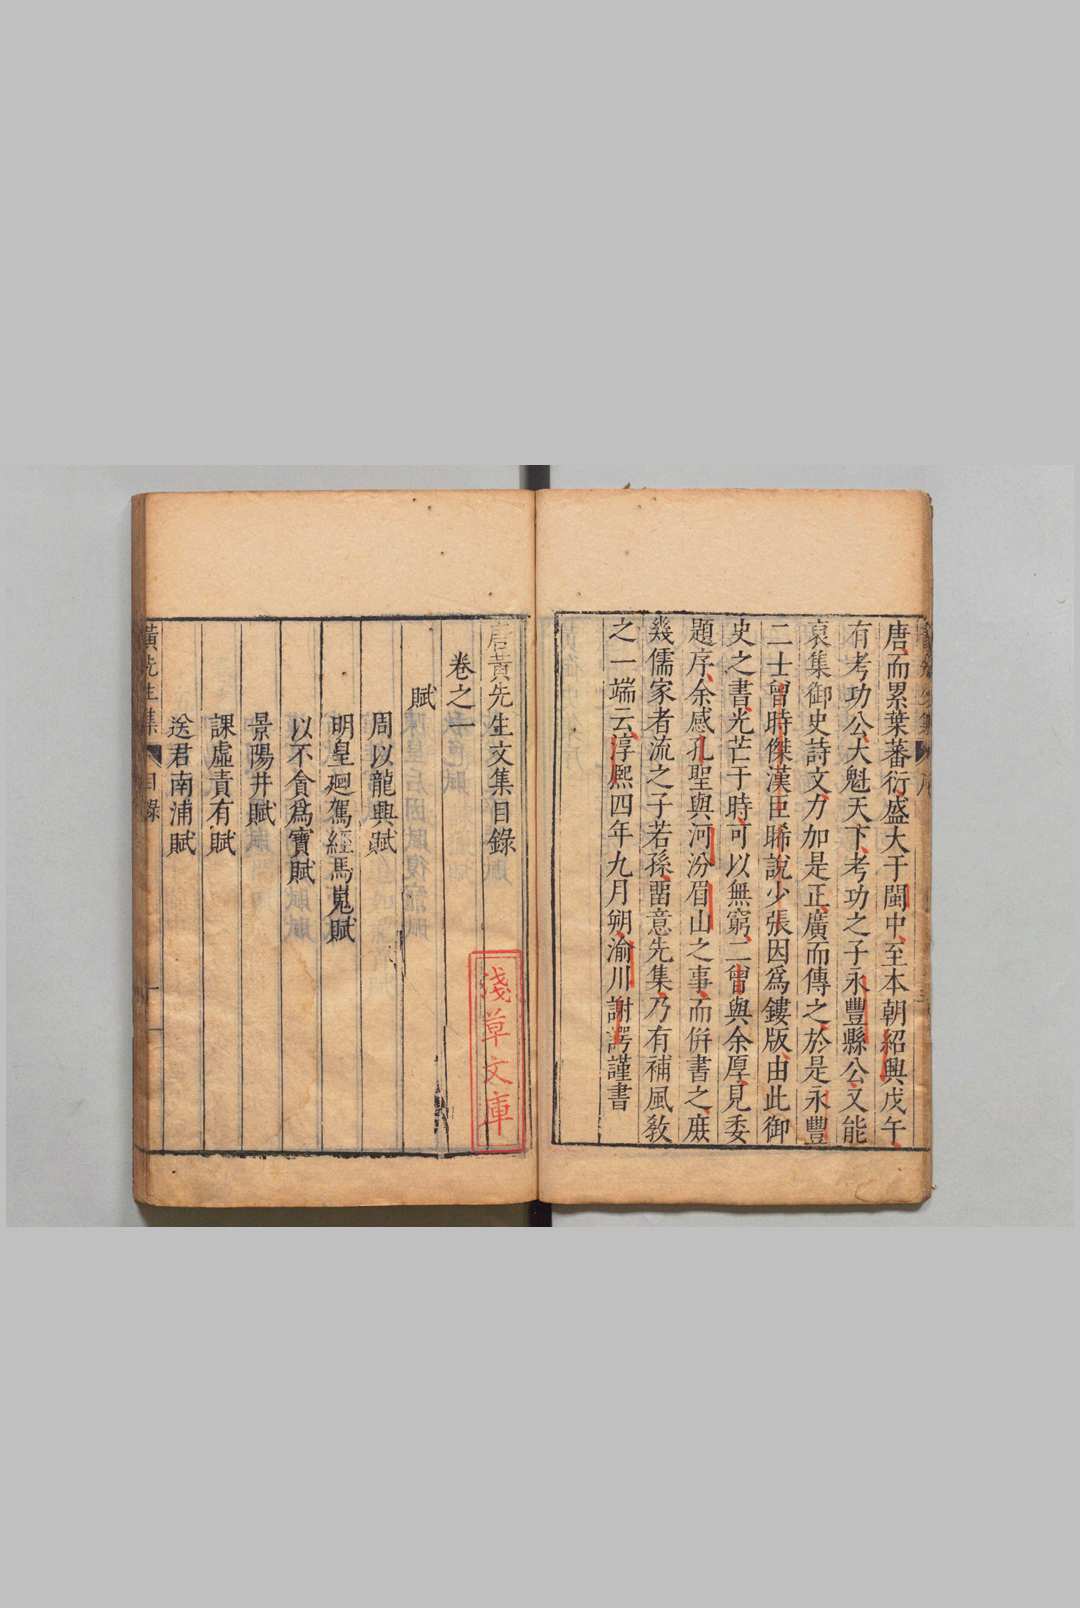 唐而累葉蕃衍盛大于閩中至本朝紹興戊午
有考功公大魁天下考功之子永豐縣公又能
裒集御史詩文力加是正廣而傳之於是永豐
二士曾時傑漢臣睎說少張因爲鏤版由此御
史之書光芒于時可以無窮二曾與余厚見委
題序余感孔聖與河汾眉山之事而併書之庶
幾儒家者流之子若孫畱意先集乃有補風敎
之一端云淳熙四年九月朔渝川謝諤謹書
唐黃先生文集目錄
卷之一
賦
周以龍興賦
明皇廻駕經馬嵬賦
以不貪爲寶賦
景陽井賦
課虛責有賦
送君南浦賦
黃先生集
目錄
一
淺草文庫